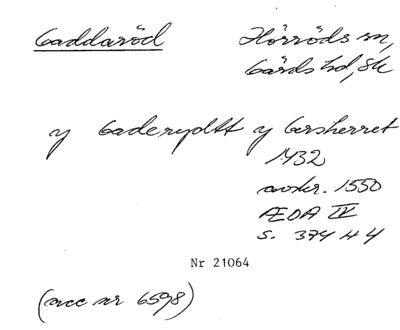 Gaddaröd Hörröds sn,
Gärds hd, Sk
y Gaderydtt y Gersherret
1432
avskr. 1550
ÆDA IV
s. 374 H 4
Nr 21064
(acc nr 6598)